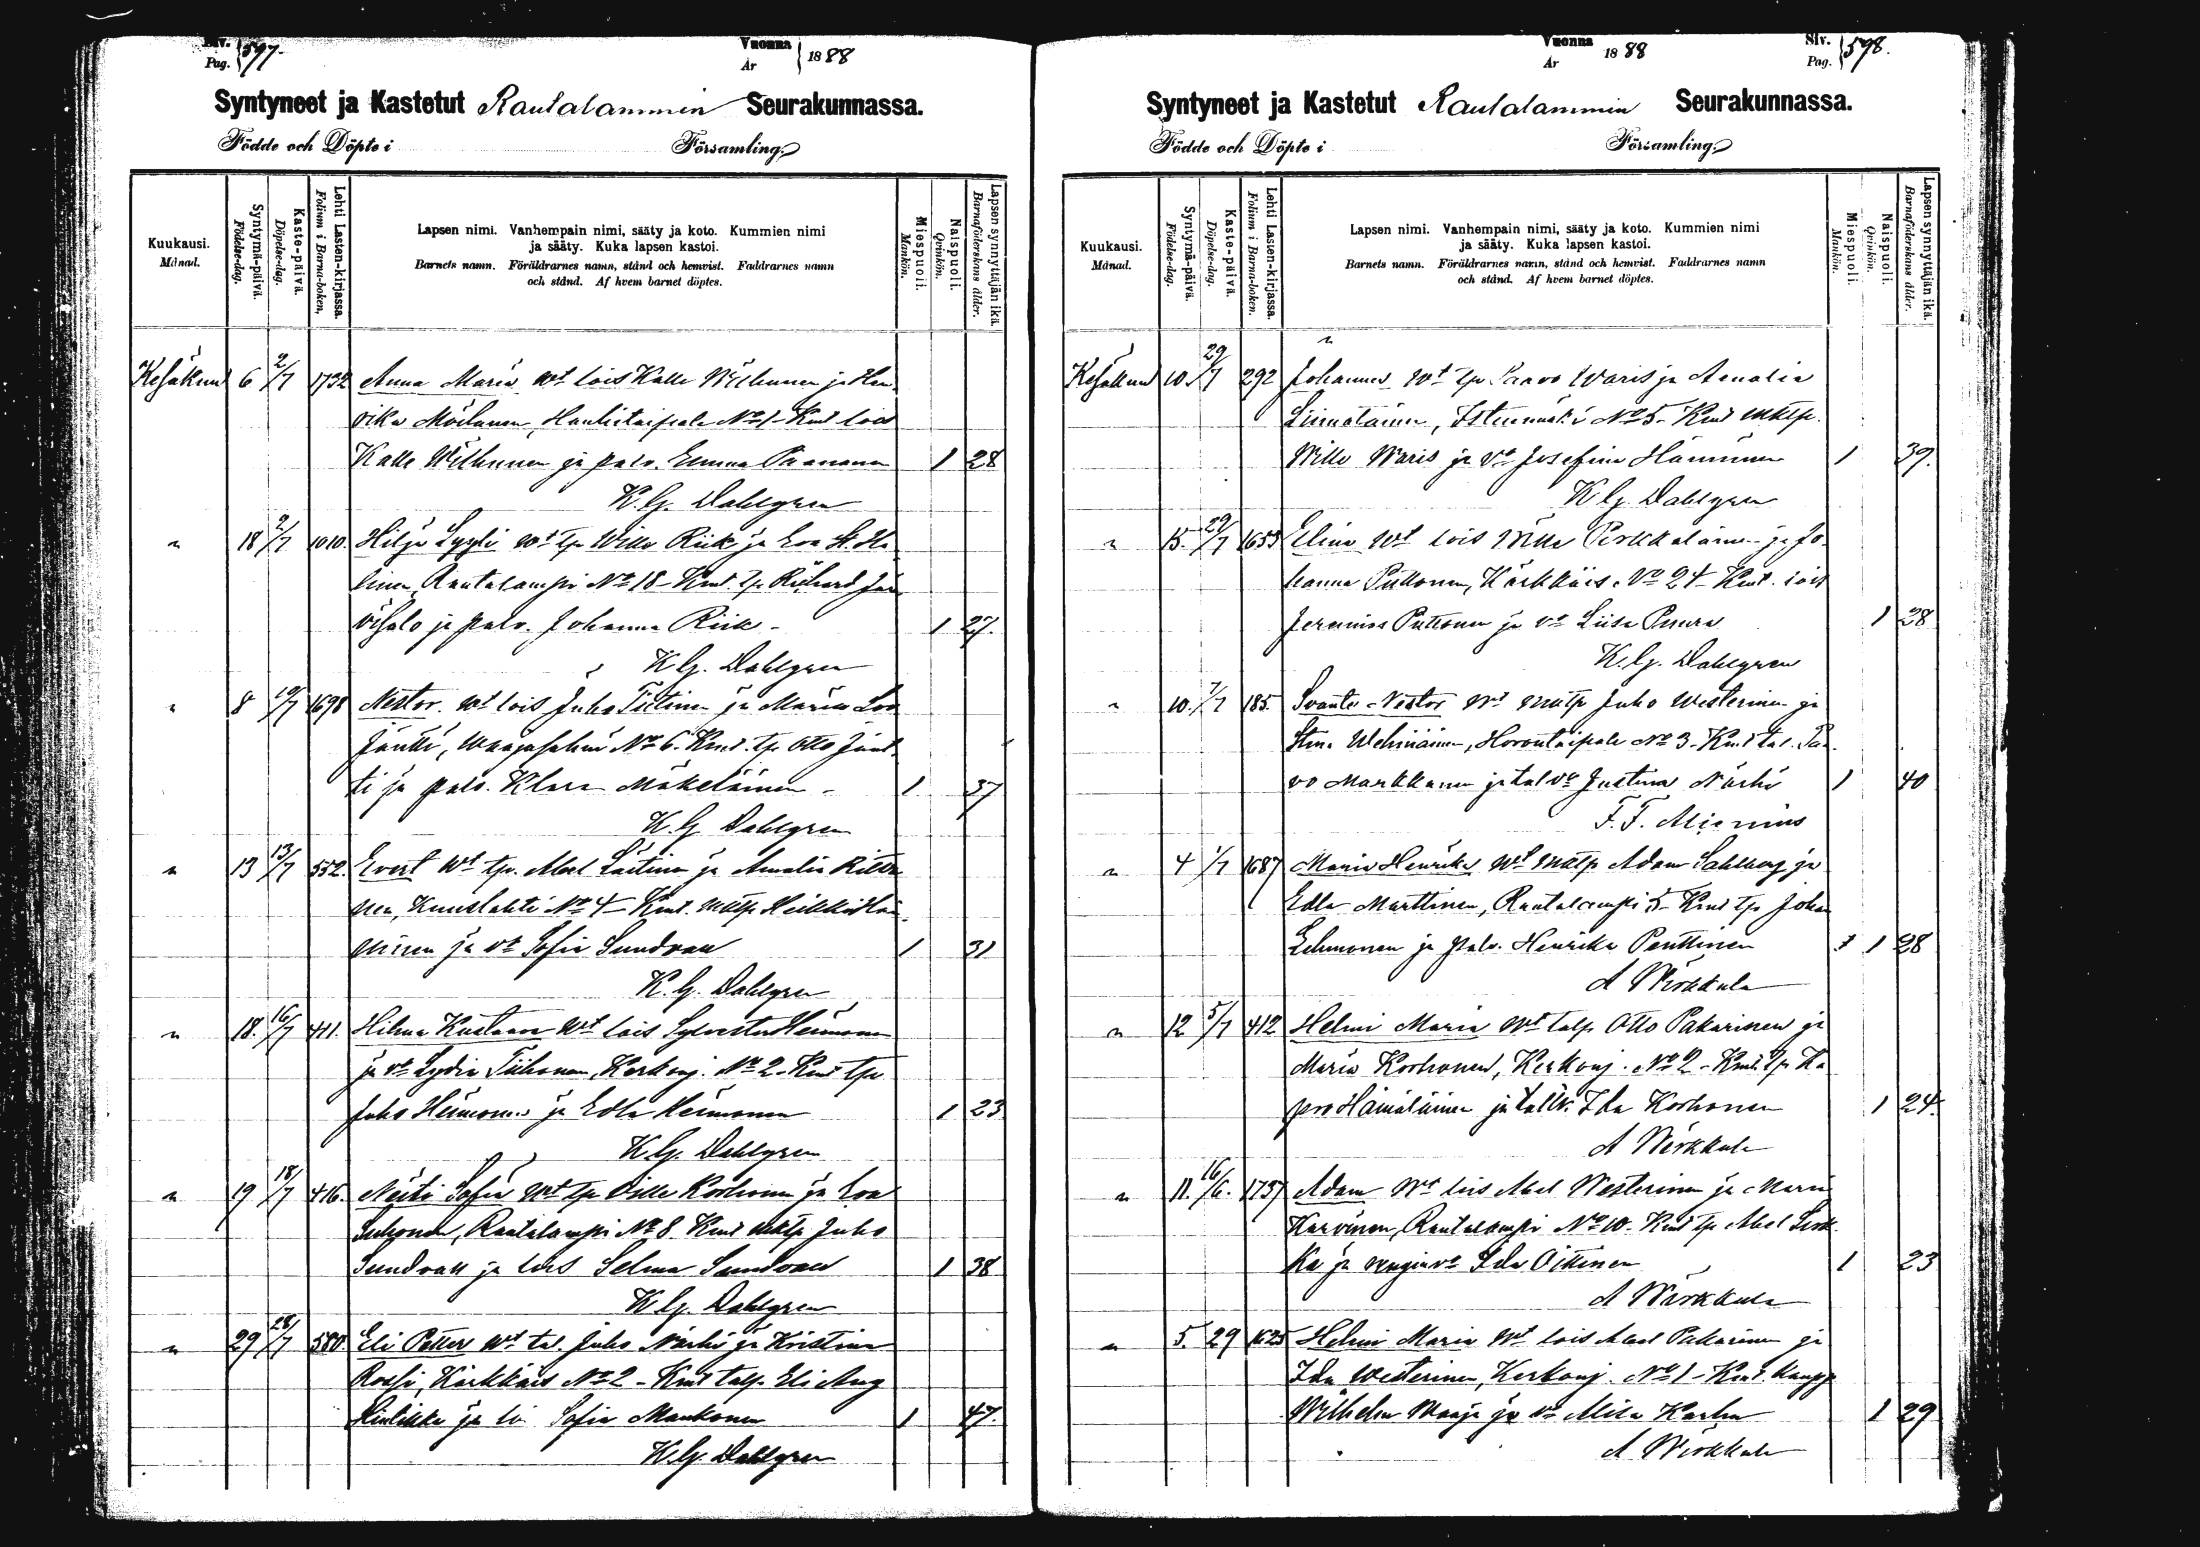 Siv.
Pag. 597.
Vuonna
År 1888
Syntyneet ja Kastetut Rautalammin Seurakunnassa.
Födde och Döpte i Församling.
Kuukausi.
Månad.
Syntymä-päivä.
Födelse-dag.
Kaste-päivä.
Döpelse-dag.
Lehti Lasten-kirjassa.
Folium i Barna-boken.
Lapsen nimi. Vanhempain nimi, sääty ja koto. Kummien nimi
ja sääty. Kuka lapsen kastoi.
Barnets namn. Föräldrarnes namn, stånd och hemvist. Faddrarnes namn
och stånd. Af hvem barnet döptes.
Miespuoli.
Mankön.
Naispuoli.
Qvinkön.
Lapsen synnyttäjän ikä.
Barnaföderskans ålder.
Kesäkuu 6 2/7 1732 Anna Maria Wt lois Kalle Wilhunen ja Hen
rika Möilanen, Hankitaipale No 1 - Kmt lois
Kalle Wilhunen ja palv. Emma Paananen 1 28
K. G. Dahlgren
" 18 2/7 1010. Hilja Lyyli Wt tp Wille Riik ja Eva St. Ha
linen, Rautalampi No 18 - Kmt. tp. Richard Jär
visalo ja palv. Johanna Riik - 1 27.
K. G. Dahlgren
" 8 10/7 1698 Nestor. Wt lois Juho Tiitinen ja Maria Lov
Jäntti, Waajasalmi No 6. Kmt. tp. Otto Jänt
ti ja palv. Klara Mäkeläinen - 1 37
K. G. Dahlgren
" 13 13/7 552. Evert Wt tp. Abel Laitinen ja Amalia
nen, No 4 - Kmt. mktp Heikki Hän
ninen ja vo Sofia Sundvall 1 31
K. G. Dahlgren
" 18. 16/7 411. Hilma Kustaava Wt lois Sylvester Heimonen
ja vo Lydia Tiihonen, Kerkonj. No 2 - Kmt tp
Juho Heimonen ja Edla Heimonen 1 23
K. G. Dahlgren
" 19 18/7 416. Neiti Sofia Wt tp Ville Korhonen ja Eva
Suhonen, Rautalampi No 8. Kmt mktp Juho
Sundvall ja lois Selma Sundvall 1 38
K. G. Dahlgren
" 29 28/7 580. Eli Petter Wt tal. Juho Närhi ja Kristina
Rossi, Kärkkäis No 2 - Kmt talp. Eli Aug
Liukka ja lo Sofia Mankonen 1 47.
K. G. Dahlgren
Vuonna
År 1888
Siv.
Pag. 598.
Syntyneet ja Kastetut Rautalammin Seurakunnassa.
Födde och Döpte i Församling.
Kuukausi.
Månad.
Syntymä-päivä.
Födelse-dag.
Kaste-päivä.
Döpelse-dag.
Lehti Lasten-kirjassa.
Folium i Barna-boken.
Lapsen nimi. Vanhempain nimi, sääty ja koto. Kummien nimi
ja sääty. Kuka lapsen kastoi.
Barnets namn. Föräldrarnes namn, stånd och hemvist. Faddrarnes namn
och stånd. Af hvem barnet döptes.
Miespuoli.
Mankön.
Naispuoli.
Qvinkön.
Lapsen synnyttäjän ikä.
Barnaföderskans ålder.
Kesäkuu 10. 29/7 292 Johannes Wt tp. Paavo Waris ja Amalia
Liimatainen, Istunmäki No 5 - Kmt mktp.
Wille Waris ja vo Josefina Hänninen 1 39.
K. G. Dahlgren
" 15. 29/7 1653 Elina Wt lois Wille Pirkkalainen ja Jo
hanna Puttonen, Kärkkäis. No 24 - Kmt. lois
Jeremias Puttonen ja vo Liisa Puura 1 28
K. G. Dahlgren
" 10. 1/7 185. Svante Nestor Wt mktp Juho Westerinen ja
Stina Wehviäinen, Horontaipale No 3 - Kmt tal. Paa
vo Markkanen ja tal vo Justina Närhi 1 40
F. F.
" 4 1/7 1687 Maria Henrika Wt mktp Adam Sahlberg ja
Edla Marttinen, Rautalampi 5 - Kmt tp Johan
Lehmonen ja palv. Henrika Penttinen 1 28
A Wirkkula
" 12 5/7 412 Helmi Maria Wt talp. Otto Pakarinen ja
Maria Korhonen, Kerkonj. No 2 - Kmt. tp. Ka
pro Hämäläinen ja Ida Korhonen 1 24.
A Wirkkula
" 11. 16/6. 1737 Adam Wt lois Abel Westerinen ja Maria
Karvinen, Rautalampi No 10. Kmt tp Abel Sirk
ka ja renginvo Ida Oittinen 1 23
A Wirkkula
" 5. 29 1625 Helmi Maria Wt lois Abel Pakarinen ja
Ida Westerinen, Kerkonj. No 1 - Kmt. kaupp
Wilhelm Waaja ja vo Miila Karlin 1 29
A Wirkkula